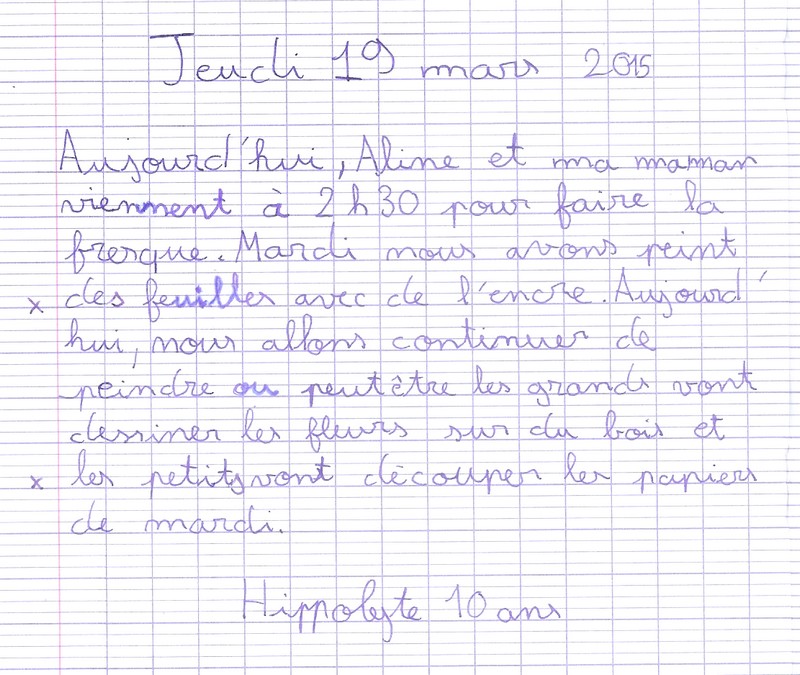 Jeudi 19 mars 2015
Aujourd'hui, Aline et ma maman
viennent à 2h30 pour faire la
fresque. Mardi nous avons peint
x des feuilles avec de l'encre. Aujourd'
hui, nous allons continuer de
peindre ou peutêtre les grands vont
dessiner les fleurs sur du bois et
x les petits vont découper les papiers
de mardi.
Hippolyte 10 ans